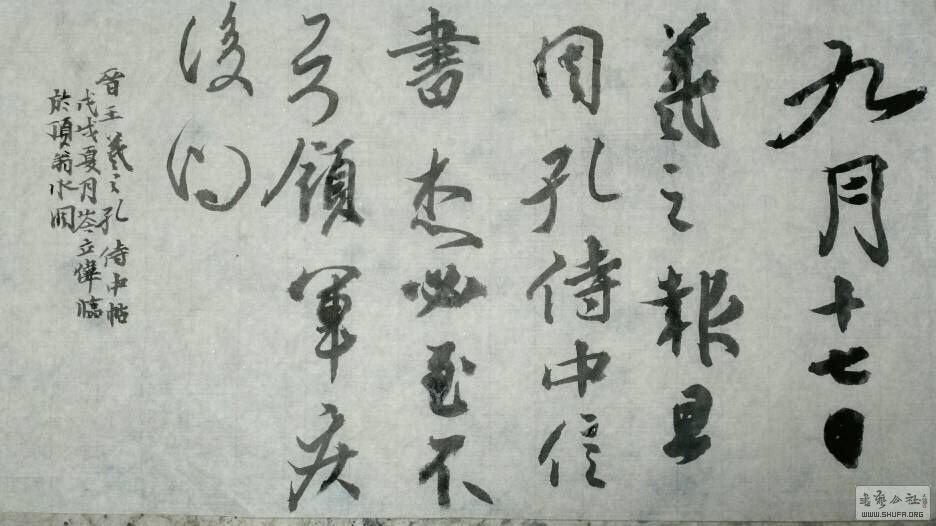 九月十七日
羲之報且
因孔侍中信
書想必至不
知領軍疾
後問
晉王羲之孔侍中帖
戊戌夏月岑立偉臨
於頂翁水閣
書藝公社
WWW.SHUFA.ORG